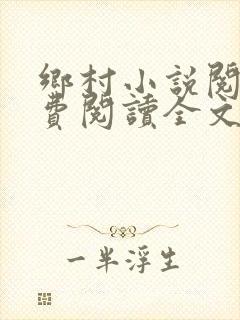 鄉村小説閱
費閱讀全文
一半浮生